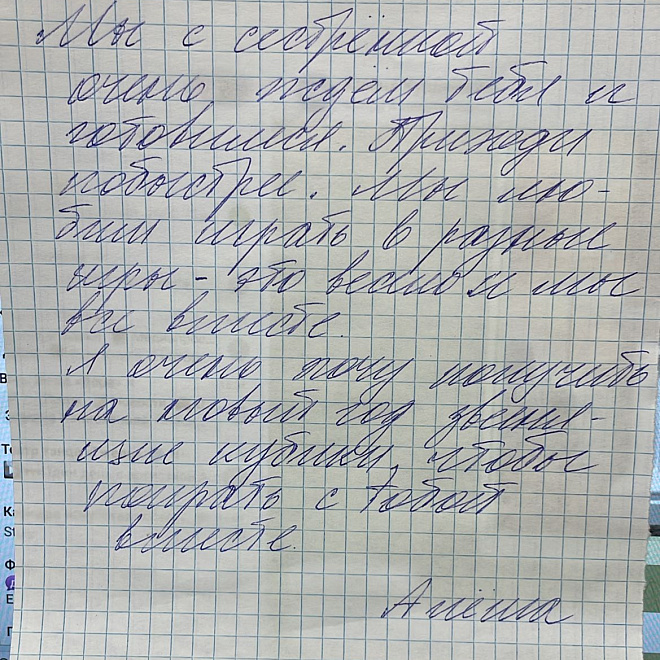 Мы с сестрёнкой
очень ждём тебя и
готовимся. Приходи
побыстрее. Мы лю-
бим играть в разные
игры - это весело и мы
все вместе.
Я очень хочу получить
на новый год звеня-
щие кубики, чтобы
поиграть с тобой
вместе.
Алёша